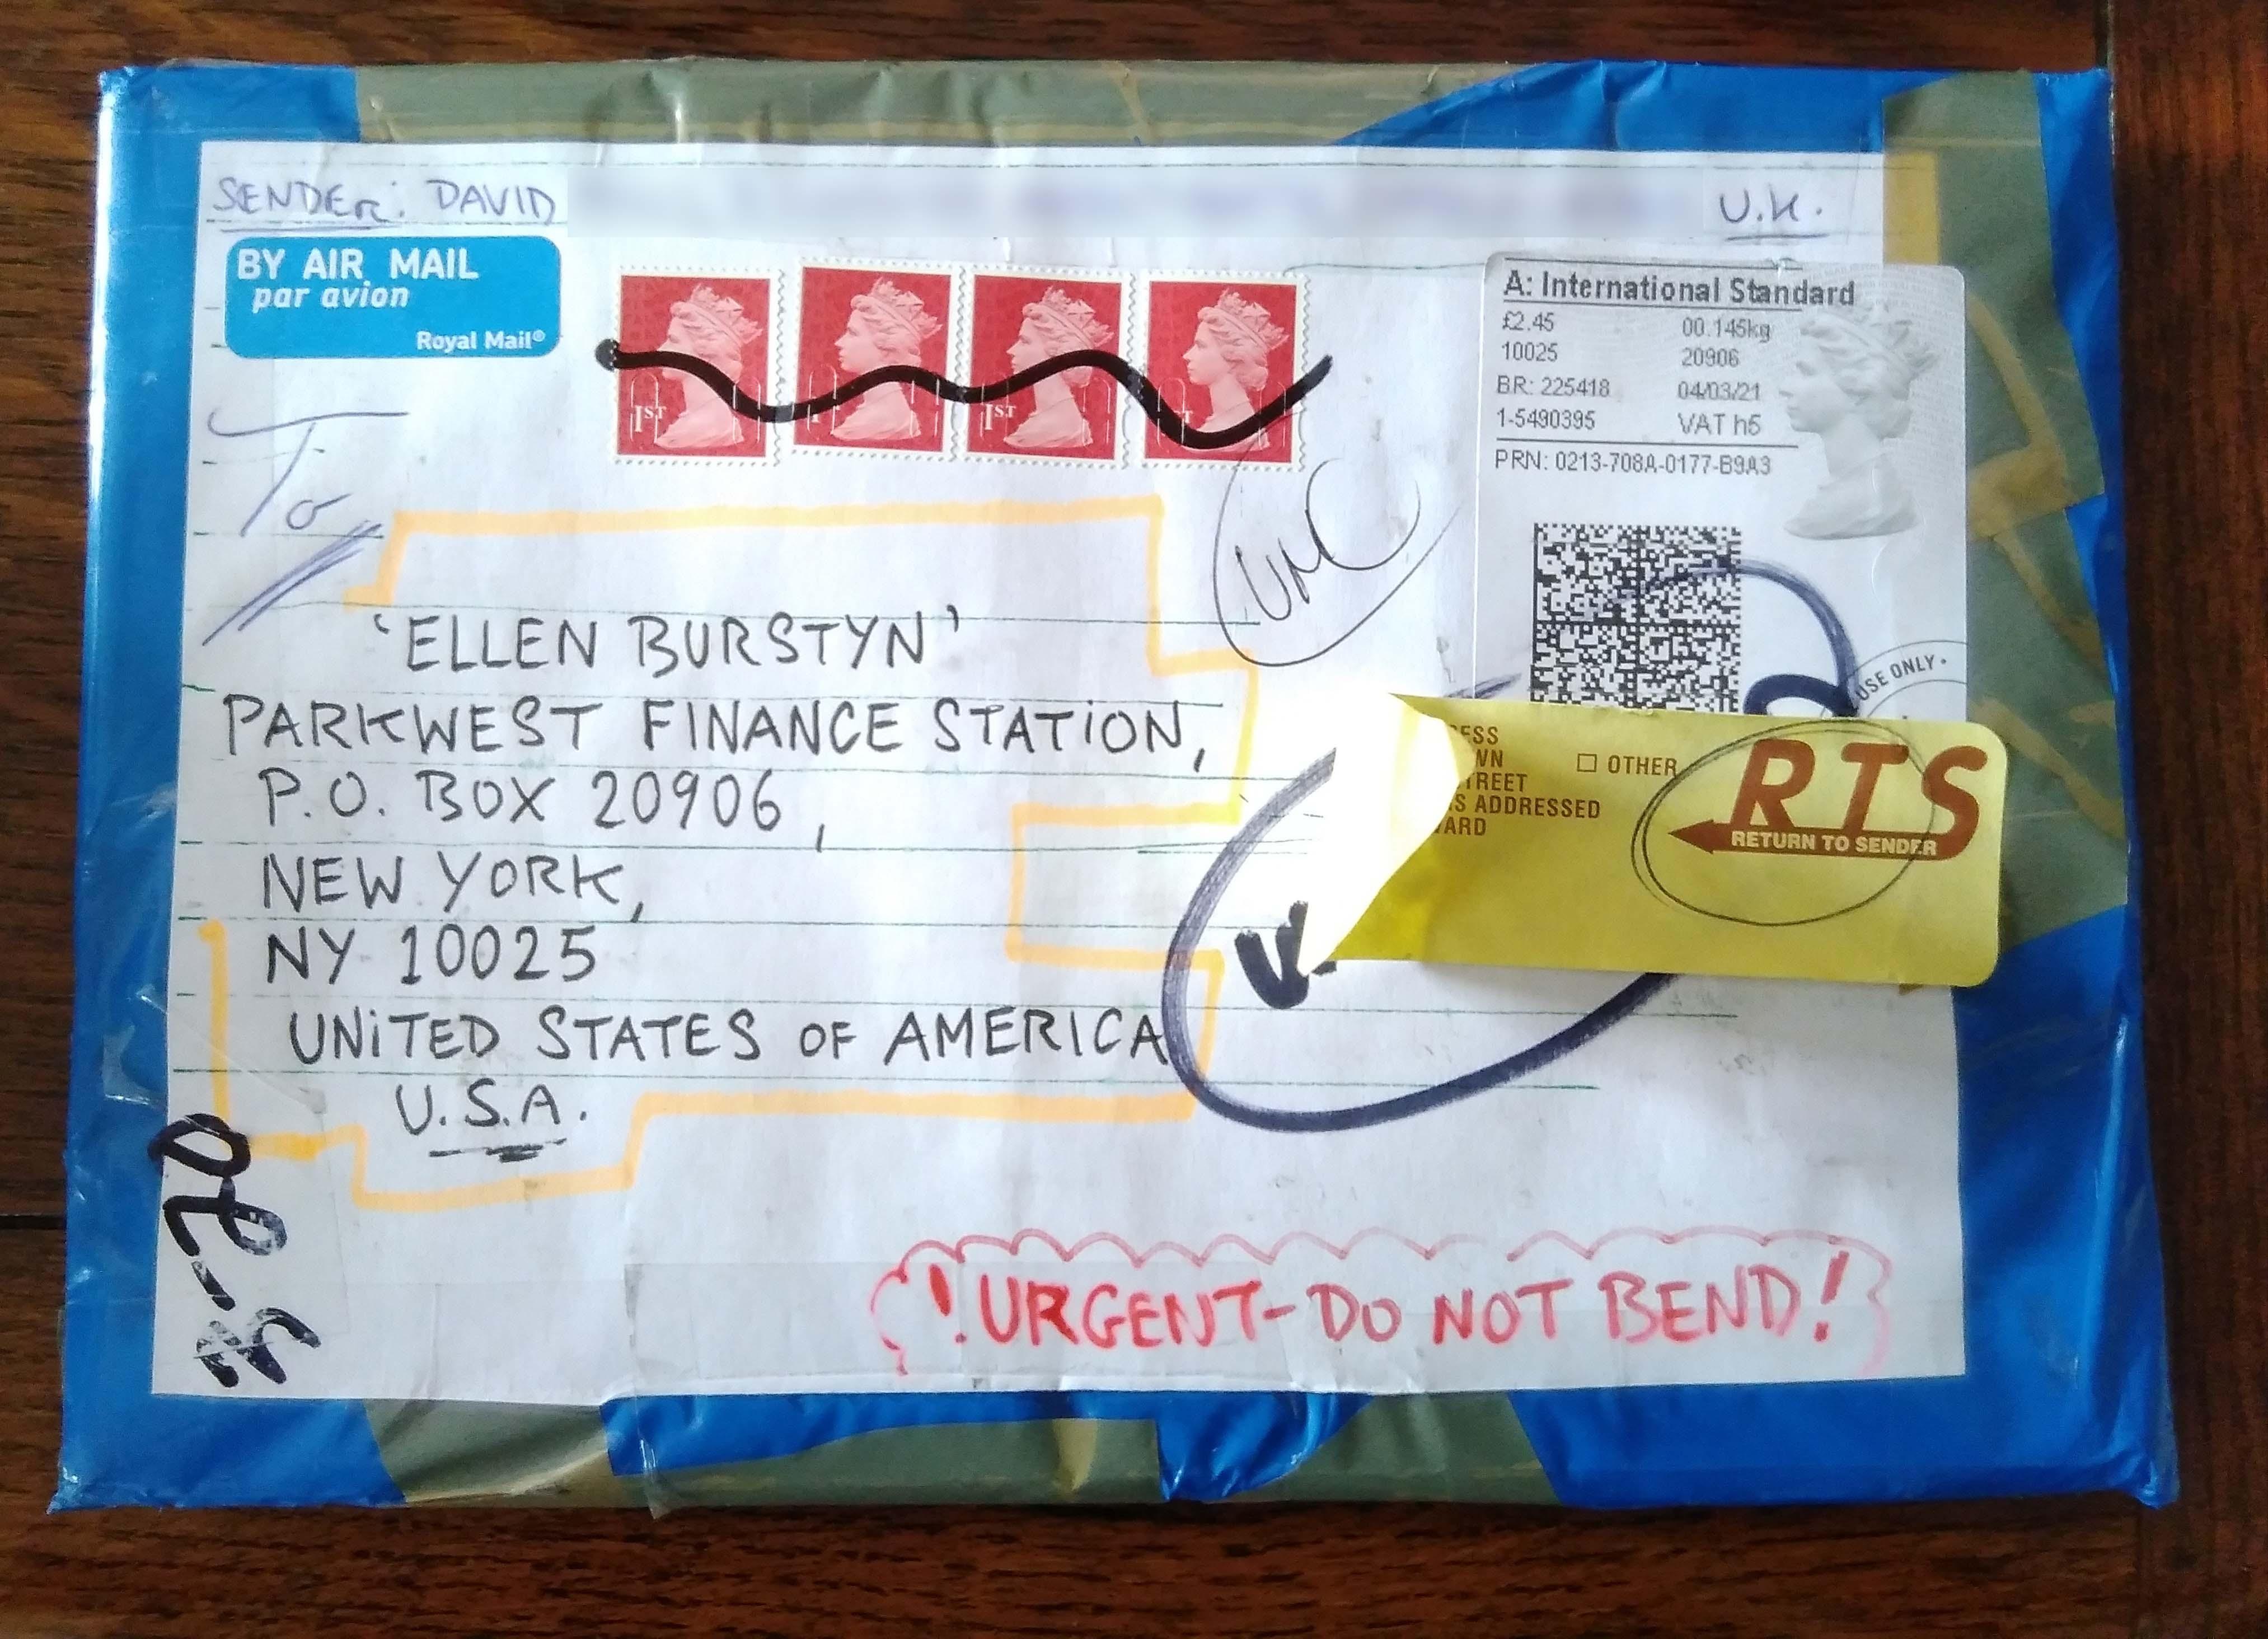 SENDER: DAVID
U.K.
BY AIR MAIL
par avion
Royal Mail®
1ST
1ST
A: International Standard
£2.45 00.145kg
10025 20906
BR: 225418 04/03/21
1-5490395 VAT h5
PRN: 0213-708A-0177-B9A3
To
UNC
USE ONLY
'ELLEN BURSTYN'
PARKWEST FINANCE STATION,
P.O. BOX 20906,
NEW YORK,
NY 10025
UNITED STATES OF AMERICA
U.S.A.
OTHER
STREET
AS ADDRESSED
RTS
RETURN TO SENDER
! URGENT - DO NOT BEND!